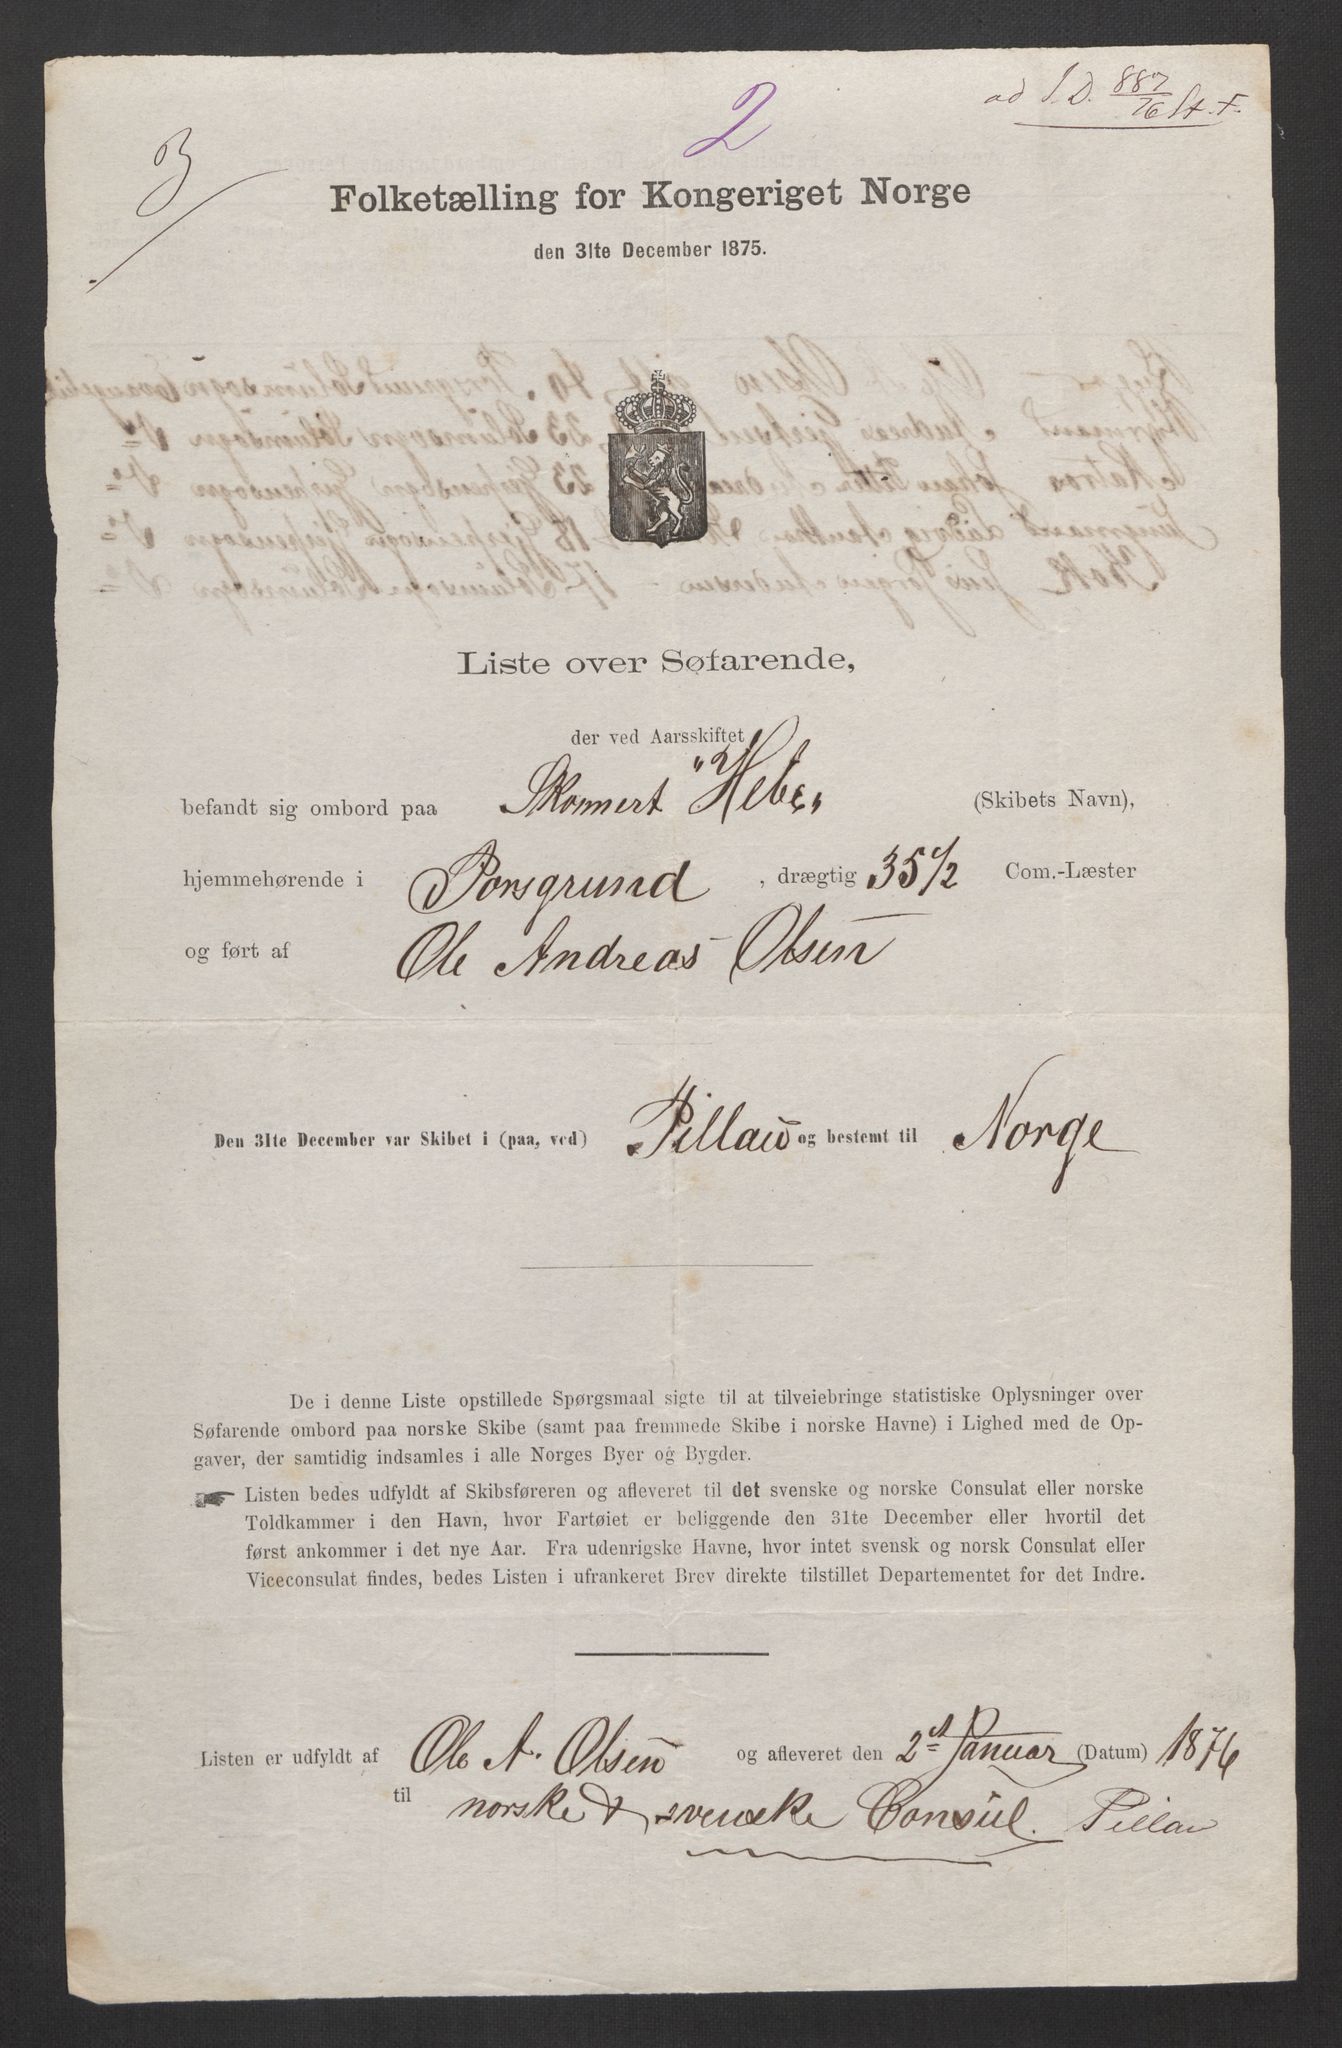 ad J. D. 887/76 St. F.
2
3
Folketælling for Kongeriget Norge
den 31te December 1875.
Liste over Søfarende,
der ved Aarsskiftet
befandt sig ombord paa Skonnert "Hebe" (Skibets Navn),
hjemmehørende i Porsgrund, drægtig 35 1/2 Com.-Læster
og ført af Ole Andreas Olsen
Den 31te December var Skibet i (paa, ved) Pillau og bestemt til Norge
De i denne Liste opstillede Spørgsmaal sigte til at tilveiebringe statistiske Oplysninger over
Søfarende ombord paa norske Skibe (samt paa fremmede Skibe i norske Havne) i Lighed med de Op-
gaver, der samtidig indsamles i alle Norges Byer og Bygder.
Listen bedes udfyldt af Skibsføreren og afleveret til det svenske og norske Consulat eller norske
Toldkammer i den Havn, hvor Fartøiet er beliggende den 31te December eller hvortil det
først ankommer i det nye Aar. Fra udenrigske Havne, hvor intet svensk og norsk Consulat eller
Viceconsulat findes, bedes Listen i ufrankeret Brev direkte tilstillet Departementet for det Indre.
Listen er udfyldt af Ole A. Olsen og afleveret den 2et Januar (Datum) 1876
til norske & svenske Consul. Pillau